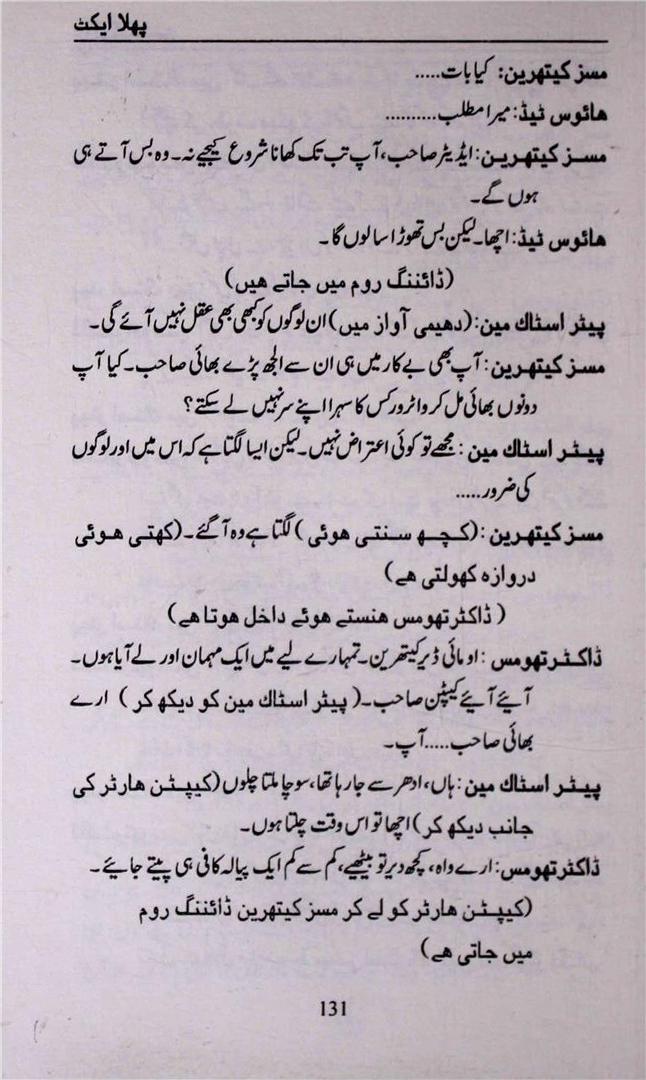 پھلا ایکٹ
مسز کیتھرین: کیا بات.....
ھائوس ٹیڈ: میرا مطلب..........
مسز کیتھرین: ایڈیٹر صاحب، آپ تب تک کھانا شروع کیجیے نہ۔ وہ بس آتے ہی
ہوں گے۔
ھائوس ٹیڈ: اچھا۔ لیکن بس تھوڑا سا لوں گا۔
(ڈائننگ روم میں جاتے ھیں)
پیٹر اسٹاك مین: (دھیمی آواز میں) ان لوگوں کو کبھی بھی عقل نہیں آئے گی۔
مسز کیتھرین: آپ بھی بے کار میں ہی ان سے الجھ پڑے بھائی صاحب۔ کیا آپ
دونوں بھائی مل کر واٹر ورکس کا سہرا اپنے سر نہیں لے سکتے؟
پیٹر اسٹاك مین: مجھے تو کوئی اعتراض نہیں۔ لیکن ایسا لگتا ہے کہ اس میں اور لوگوں
کی ضرور.....
مسز کیتھرین: (کچھ سنتی ھوئی) لگتا ہے وہ آ گئے۔ (کھتی ھوئی
دروازہ کھولتی ھے)
(ڈاکٹر تھومس ھنستے ھوئے داخل ھوتا ھے)
ڈاکٹر تھومس: او مائی ڈیر کیتھرین۔ تمہارے لیے میں ایک مہمان اور لے آیا ہوں۔
آیئے آیئے کیپٹن صاحب۔ (پیٹر اسٹاك مین کو دیکھ کر) ارے
بھائی صاحب..... آپ۔
پیٹر اسٹاك مین: ہاں، ادھر سے جا رہا تھا، سوچا ملتا چلوں (کیپٹن ھارٹر کی
جانب دیکھ کر) اچھا تو اس وقت چلتا ہوں۔
ڈاکٹر تھومس: ارے واہ، کچھ دیر تو بیٹھیے، کم سے کم ایک پیالہ کافی ہی پیتے جائیے۔
(کیپٹن ھارٹر کو لے کر مسز کیتھرین ڈائننگ روم
میں جاتی ھے)
131